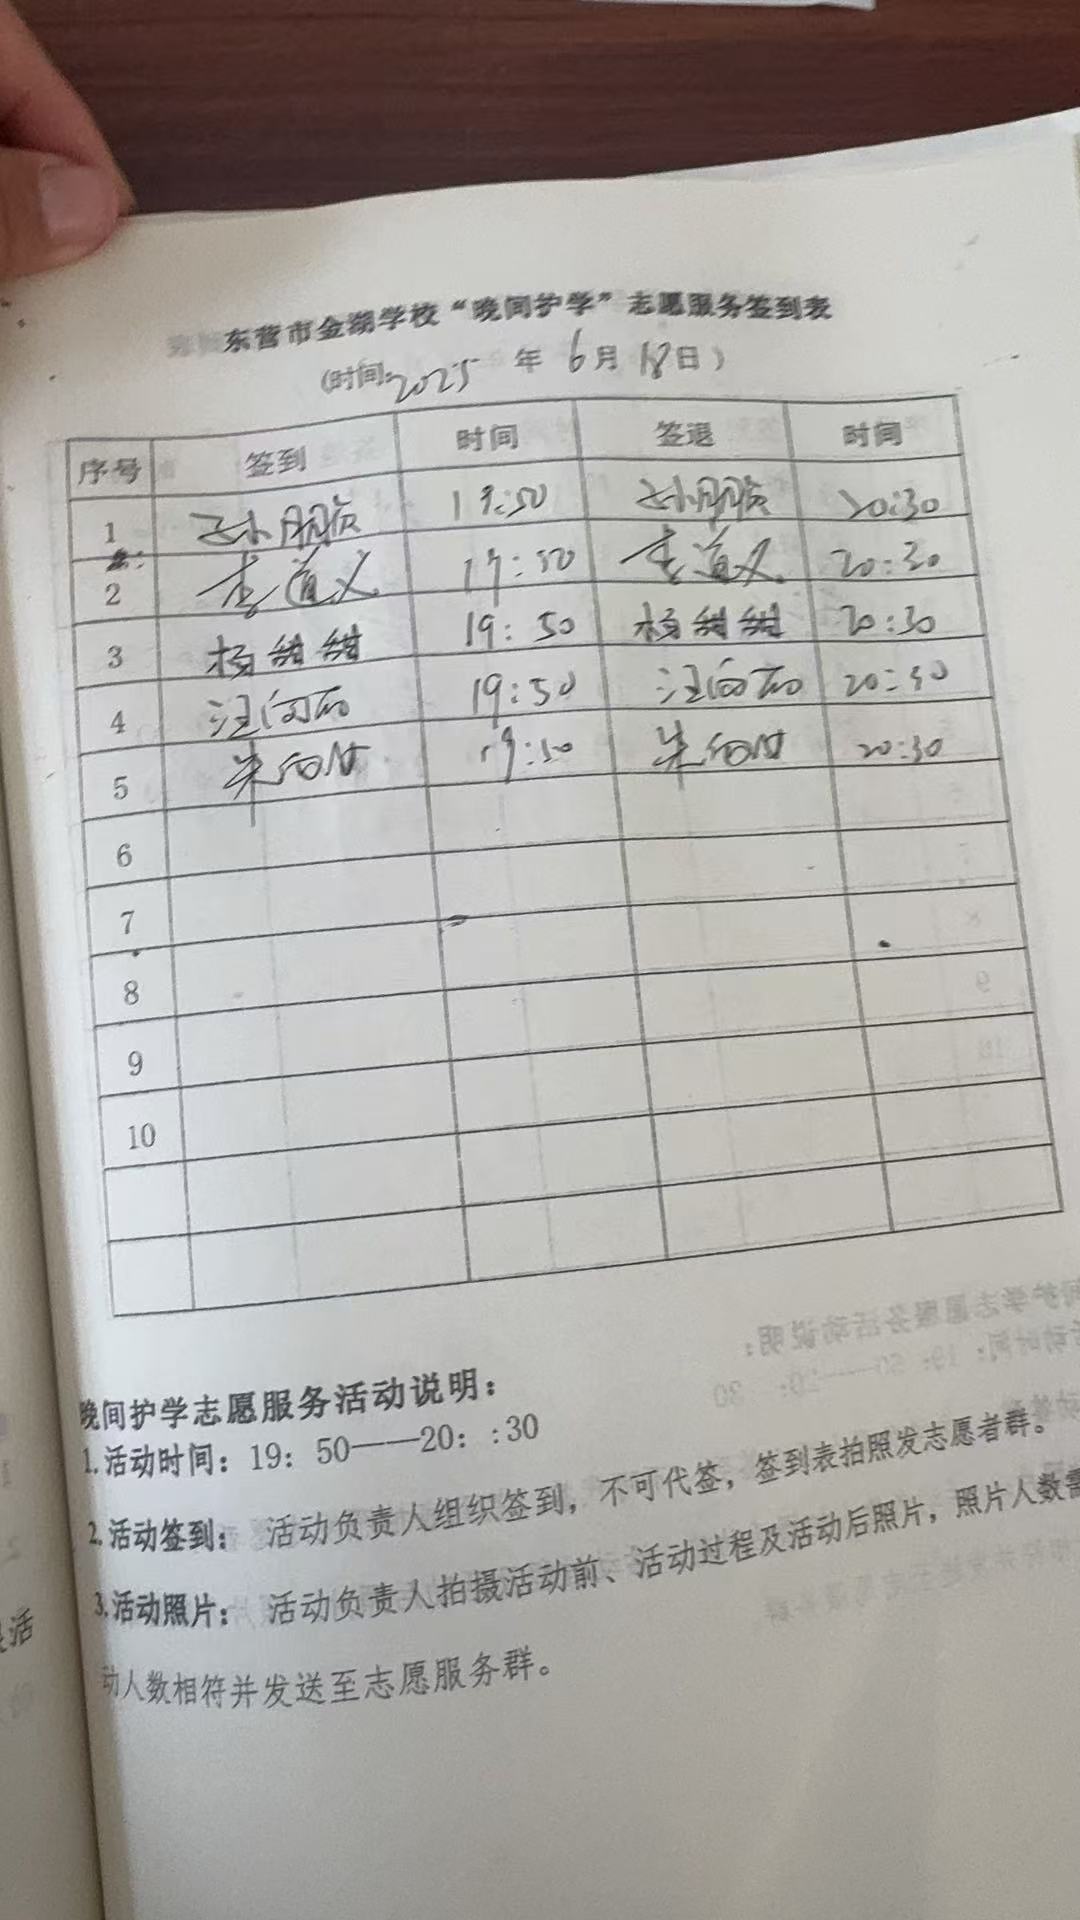 东营市金湖学校“晚间护学”志愿服务签到表
(时间:2025 年 6月 18日)
序号 签到 时间 签退 时间
1 孙朋 19:50 孙朋 20:30
2 李道义 19:50 李道义 20:30
3 杨甜甜 19:50 杨甜甜 20:30
4 汪向 19:50 汪向 20:30
5 朱 19:50 朱 20:30
6
7
8
9
10
晚间护学志愿服务活动说明：
1.活动时间：19：50——20：:30
2.活动签到： 活动负责人组织签到，不可代签，签到表拍照发志愿者群。
3.活动照片： 活动负责人拍摄活动前、活动过程及活动后照片，照片人数需
动人数相符并发送至志愿服务群。